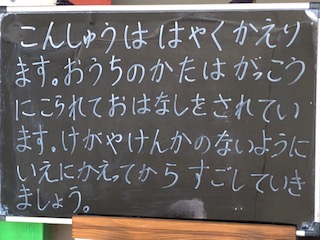 こんしゅうは はやくかえり
ます。おうちのかたは がっこう
にこられておはなしをされてい
ます。けがやけんかのないように
いえにかえってから すごしていき
ましょう。